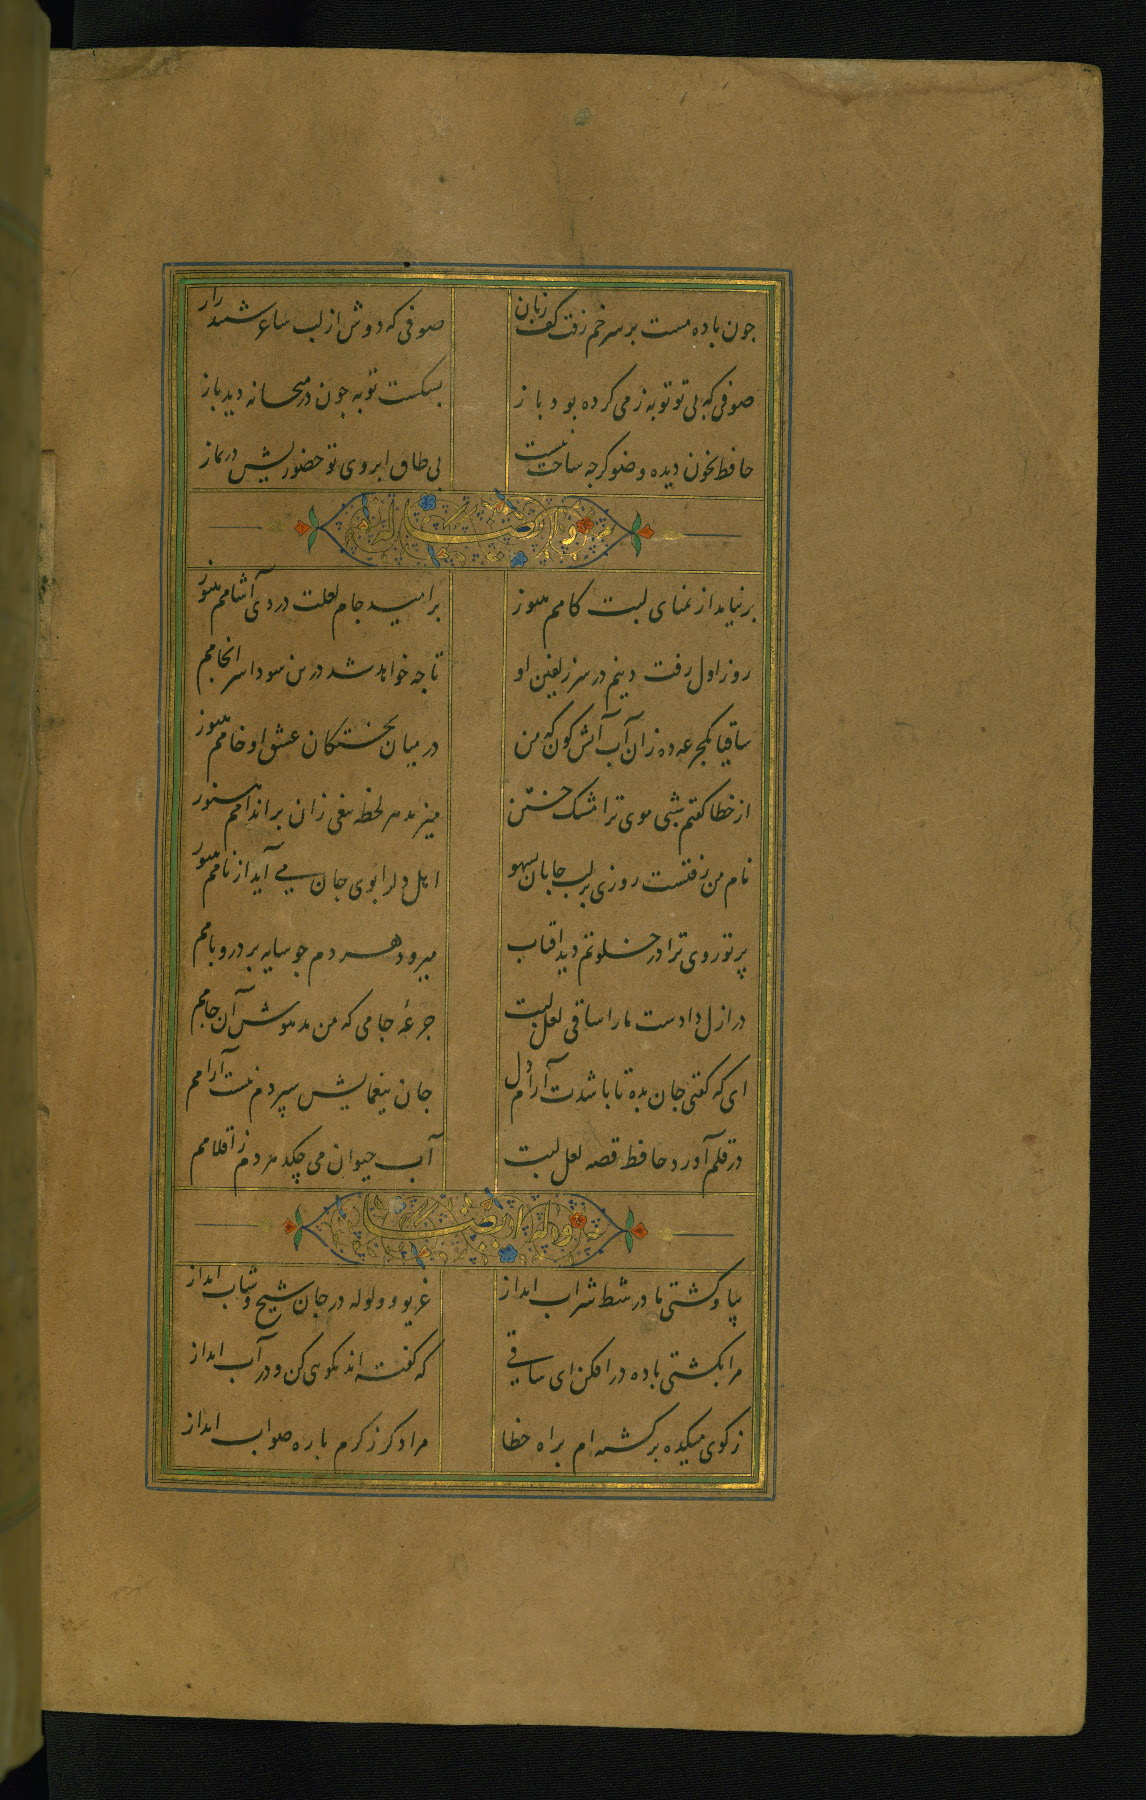 چون باده مست بر سر خم رفت کف زنان صوفی که دوش از لب ساغر شنید راز
صوفی که بی تو توبه ز می کرده بود باز بشکست توبه چون در میخانه دید باز
حافظ بخون دیده وضو کرچه ساخت نیست بی طاق ابروی تو حضوریش در نماز
وله ایضا
بر نیامد از تمنای لبت کامم هنوز بر امید جام لعلت دردی آشامم هنوز
روز اول رفت دینم در سر زلفین او تا چه خواهد شد درین سودا سرانجامم
ساقیا یکجرعه ده زان آب آتش کون که من در میان پختکان عشق او خامم هنوز
از خطا کفتم شبی موی ترا مشک ختن میزند هر لحظه تیغی زان بر اندامم هنوز
نام من رفتست روزی بر لب جانان بسهو اهل دل را بوی جان می آید از نامم هنوز
پرتو روی ترا در خلوتم دید افتاب میرود هر دم چو سایه بر در و بامم
در ازل دادست ما را ساقی لعل لبت جرعه جامی که من مدهوش آن جامم
ای که کفتی جان بده تا باشدت آرام دل جان بیغمایش سپردم نیست آرامم
در قلم آورد حافظ قصه لعل لبت آب حیوان می چکد هر دم ز اقلامم
وله ایضا
بیا و کشتی ما در شط شراب انداز غریو و ولوله در جان شیخ و شاب انداز
مرا بکشتی باده در افکن ای ساقی که کفته اند نکوی کن و در آب انداز
ز کوی میکده برکشته ام براه خطا مرا دکر ز کرم با ره صواب انداز